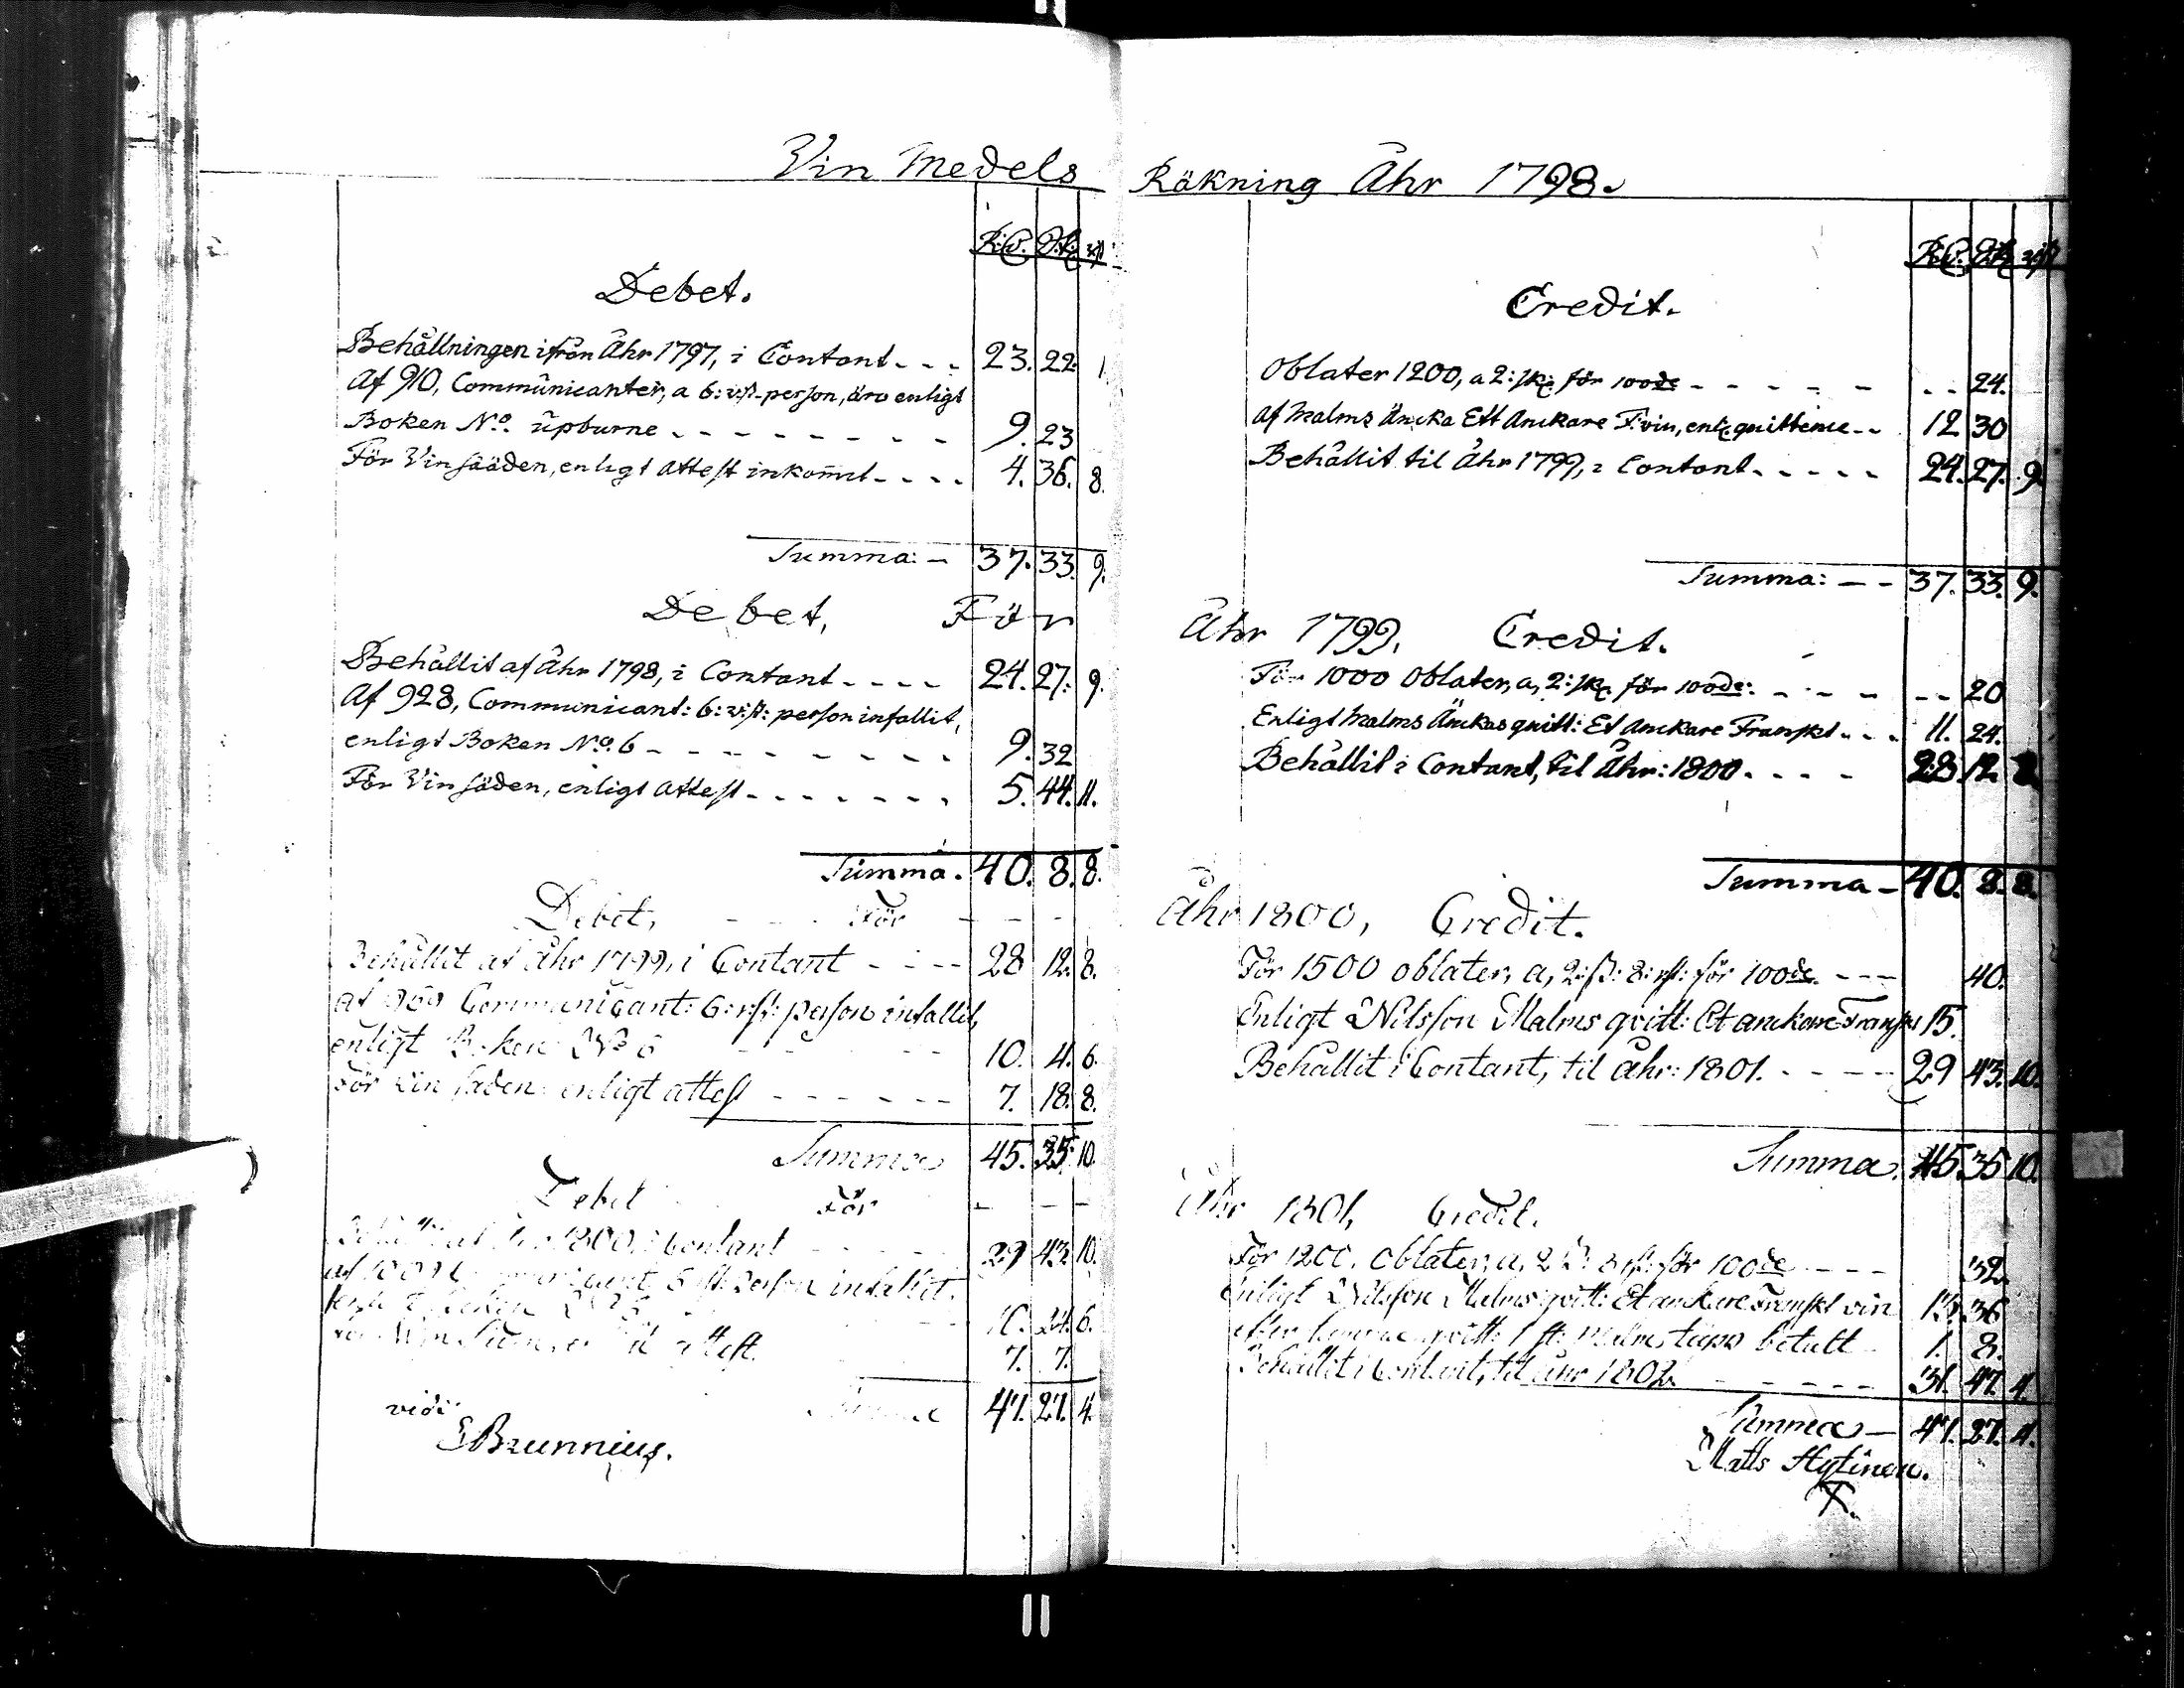 Vin Medels
R:d. Sk: rst
Debet.
Behållningen ifrån Åhr 1797, i Contant - - - 23. 22. 1.
Af 910, Communicanter, a 6: rst. person, äro enligt
Boken No. upburne - - - - - - - - 9. 23
För Vinsääden, enligt attest inkommit - - - - 4. 36. 8.
Summa: - 37. 33. 9.
Debet, För
Behållit af Åhr 1798, i Contant - - - - 24. 27. 9.
Af 928, Communicant: 6: rst: person infallit,
enligt Boken No. 6 - - - - - - - - 9. 32
För Vinsäden, enligt attest - - - - - - - 5. 44. 11.
Summa. 40. 8. 8.
Debet, - - - För - - -
Behållit af Åhr 1799, i Contant - - - - 28 12. 8.
af Communicant: 6: rst: person infallit,
enligt Boken No 6 - - - - - 10. 4. 6.
För Vin säden enligt attest - - - - - - 7. 18. 8.
Summa 45. 35. 10.
Debet För - - -
1800, i Contant - - - - 29 43. 10.
person infallit.
Boken 24. 6.
attest. 7. 7.
Summa 47. 27. 4.
vidi
EBrunnius.
Räkning Åhr 1798.
R:d. Sk: rst
Credit.
Oblater 1200, a 2: sk: för 100de - - - - - - - 24.
af Malms Äncka Ett Anckare F: vin, enl: quittence - - 12 30
Behållit til Åhr 1799, i Contant - - - - - 24. 27. 9.
Summa: - - 37. 33. 9.
Åhr 1799. Credit.
För 1000 Oblater, a, 2: sk: för 100de: - - - - - - 20
Enligt Malms Änckas quitt: Et Anckare Franskt - - - 11. 24.
Behållit i Contant, til Åhr: 1800. - - - - 28. 12. 8.
Summa - 40. 8. 8.
Åhr 1800, Credit.
För 1500 oblater, a, 2: ß: 8: rst: för 100de. - - - 40.
Enligt Nilsson Malms qvitt: Et anckare Franskt 15.
Behållit i Contant, til åhr: 1801. - - - - - 29 43. 10.
Summa. 45. 35 10.
Åhr 1801, Credit.
För 1200. Oblater, a, 2 ß: 8 rst: för 100de - - - 32.
Enligt Nilsson Malms qvitt: Et anckare Franskt vin 13. 36
qvitt: 1 st: betalt - 1. 8.
Behållit i Contant, til åhr 1802. - - - - - 31. 47. 4.
Summa - 47. 27. 4.
Matts Hytinen.